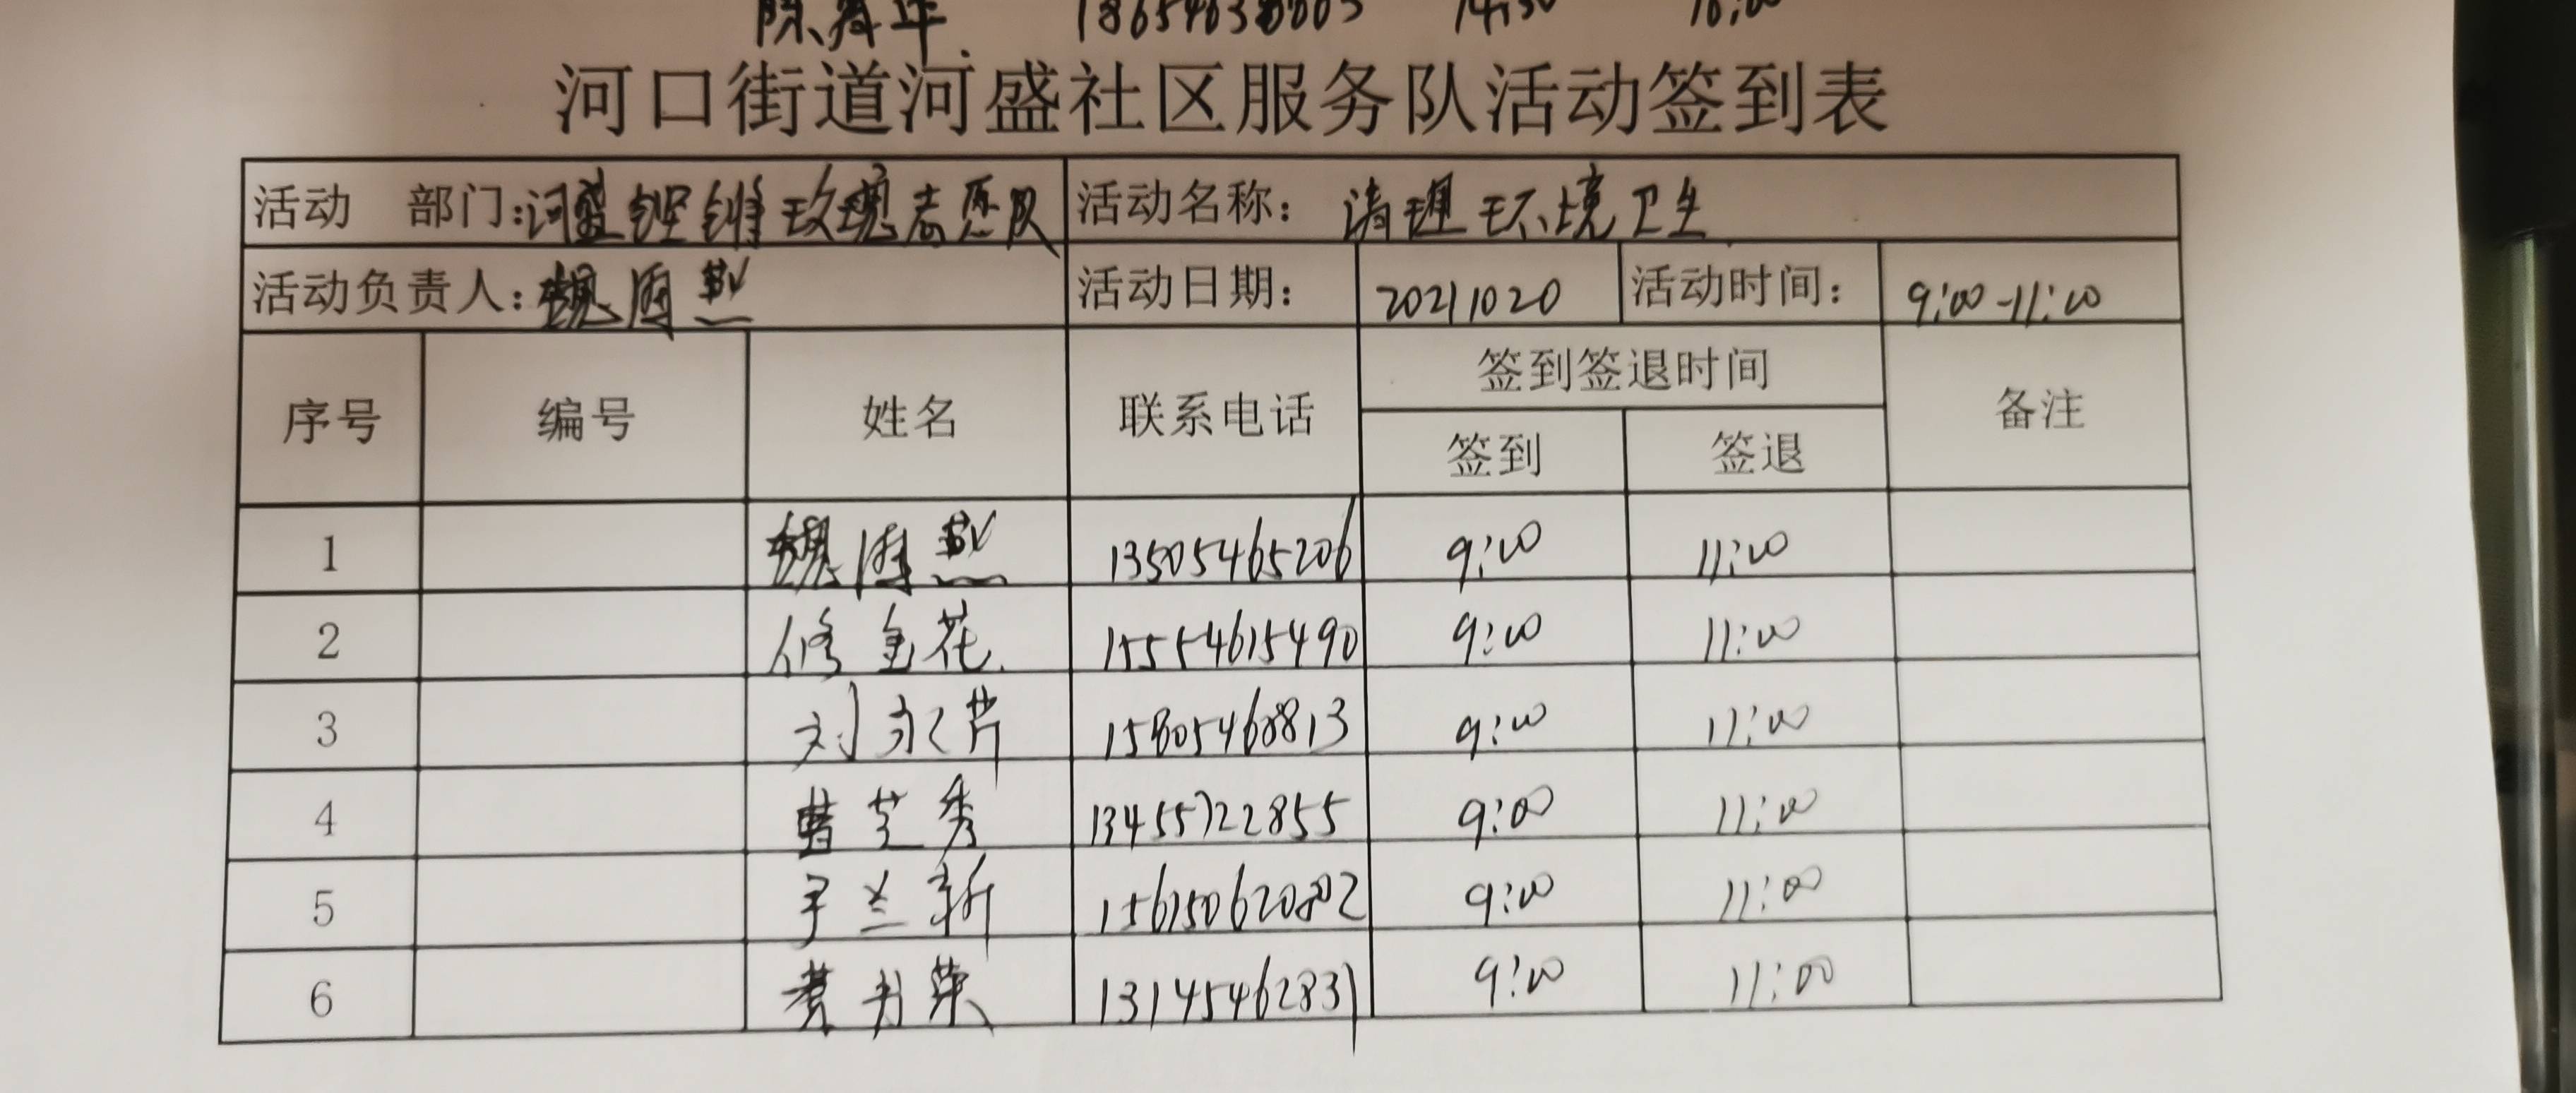 河口街道河盛社区服务队活动签到表
活动 部门:河盛铿锵玫瑰志愿队 活动名称: 清理环境卫生
活动负责人: 魏 燕 活动日期: 20211020 活动时间: 9:00-11:00
序号 编号 姓名 联系电话 签到签退时间 备注
签到 签退
1 魏 燕 13505465206 9:00 11:00
2 修金花 15554615490 9:00 11:00
3 刘永芹 15805468813 9:00 11:00
4 曹芝秀 13455722855 9:00 11:00
5 兰新 9:00 11:00
6 荣 13145462831 9:00 11:00